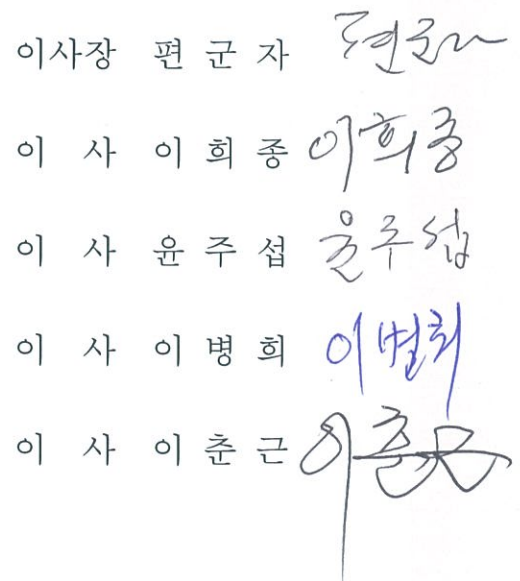 이사장 편 군 자 편군자
이 사 이 희 종 이희종
이 사 윤 주 섭 윤주섭
이 사 이 병 희 이병희
이 사 이 춘 근 이춘근